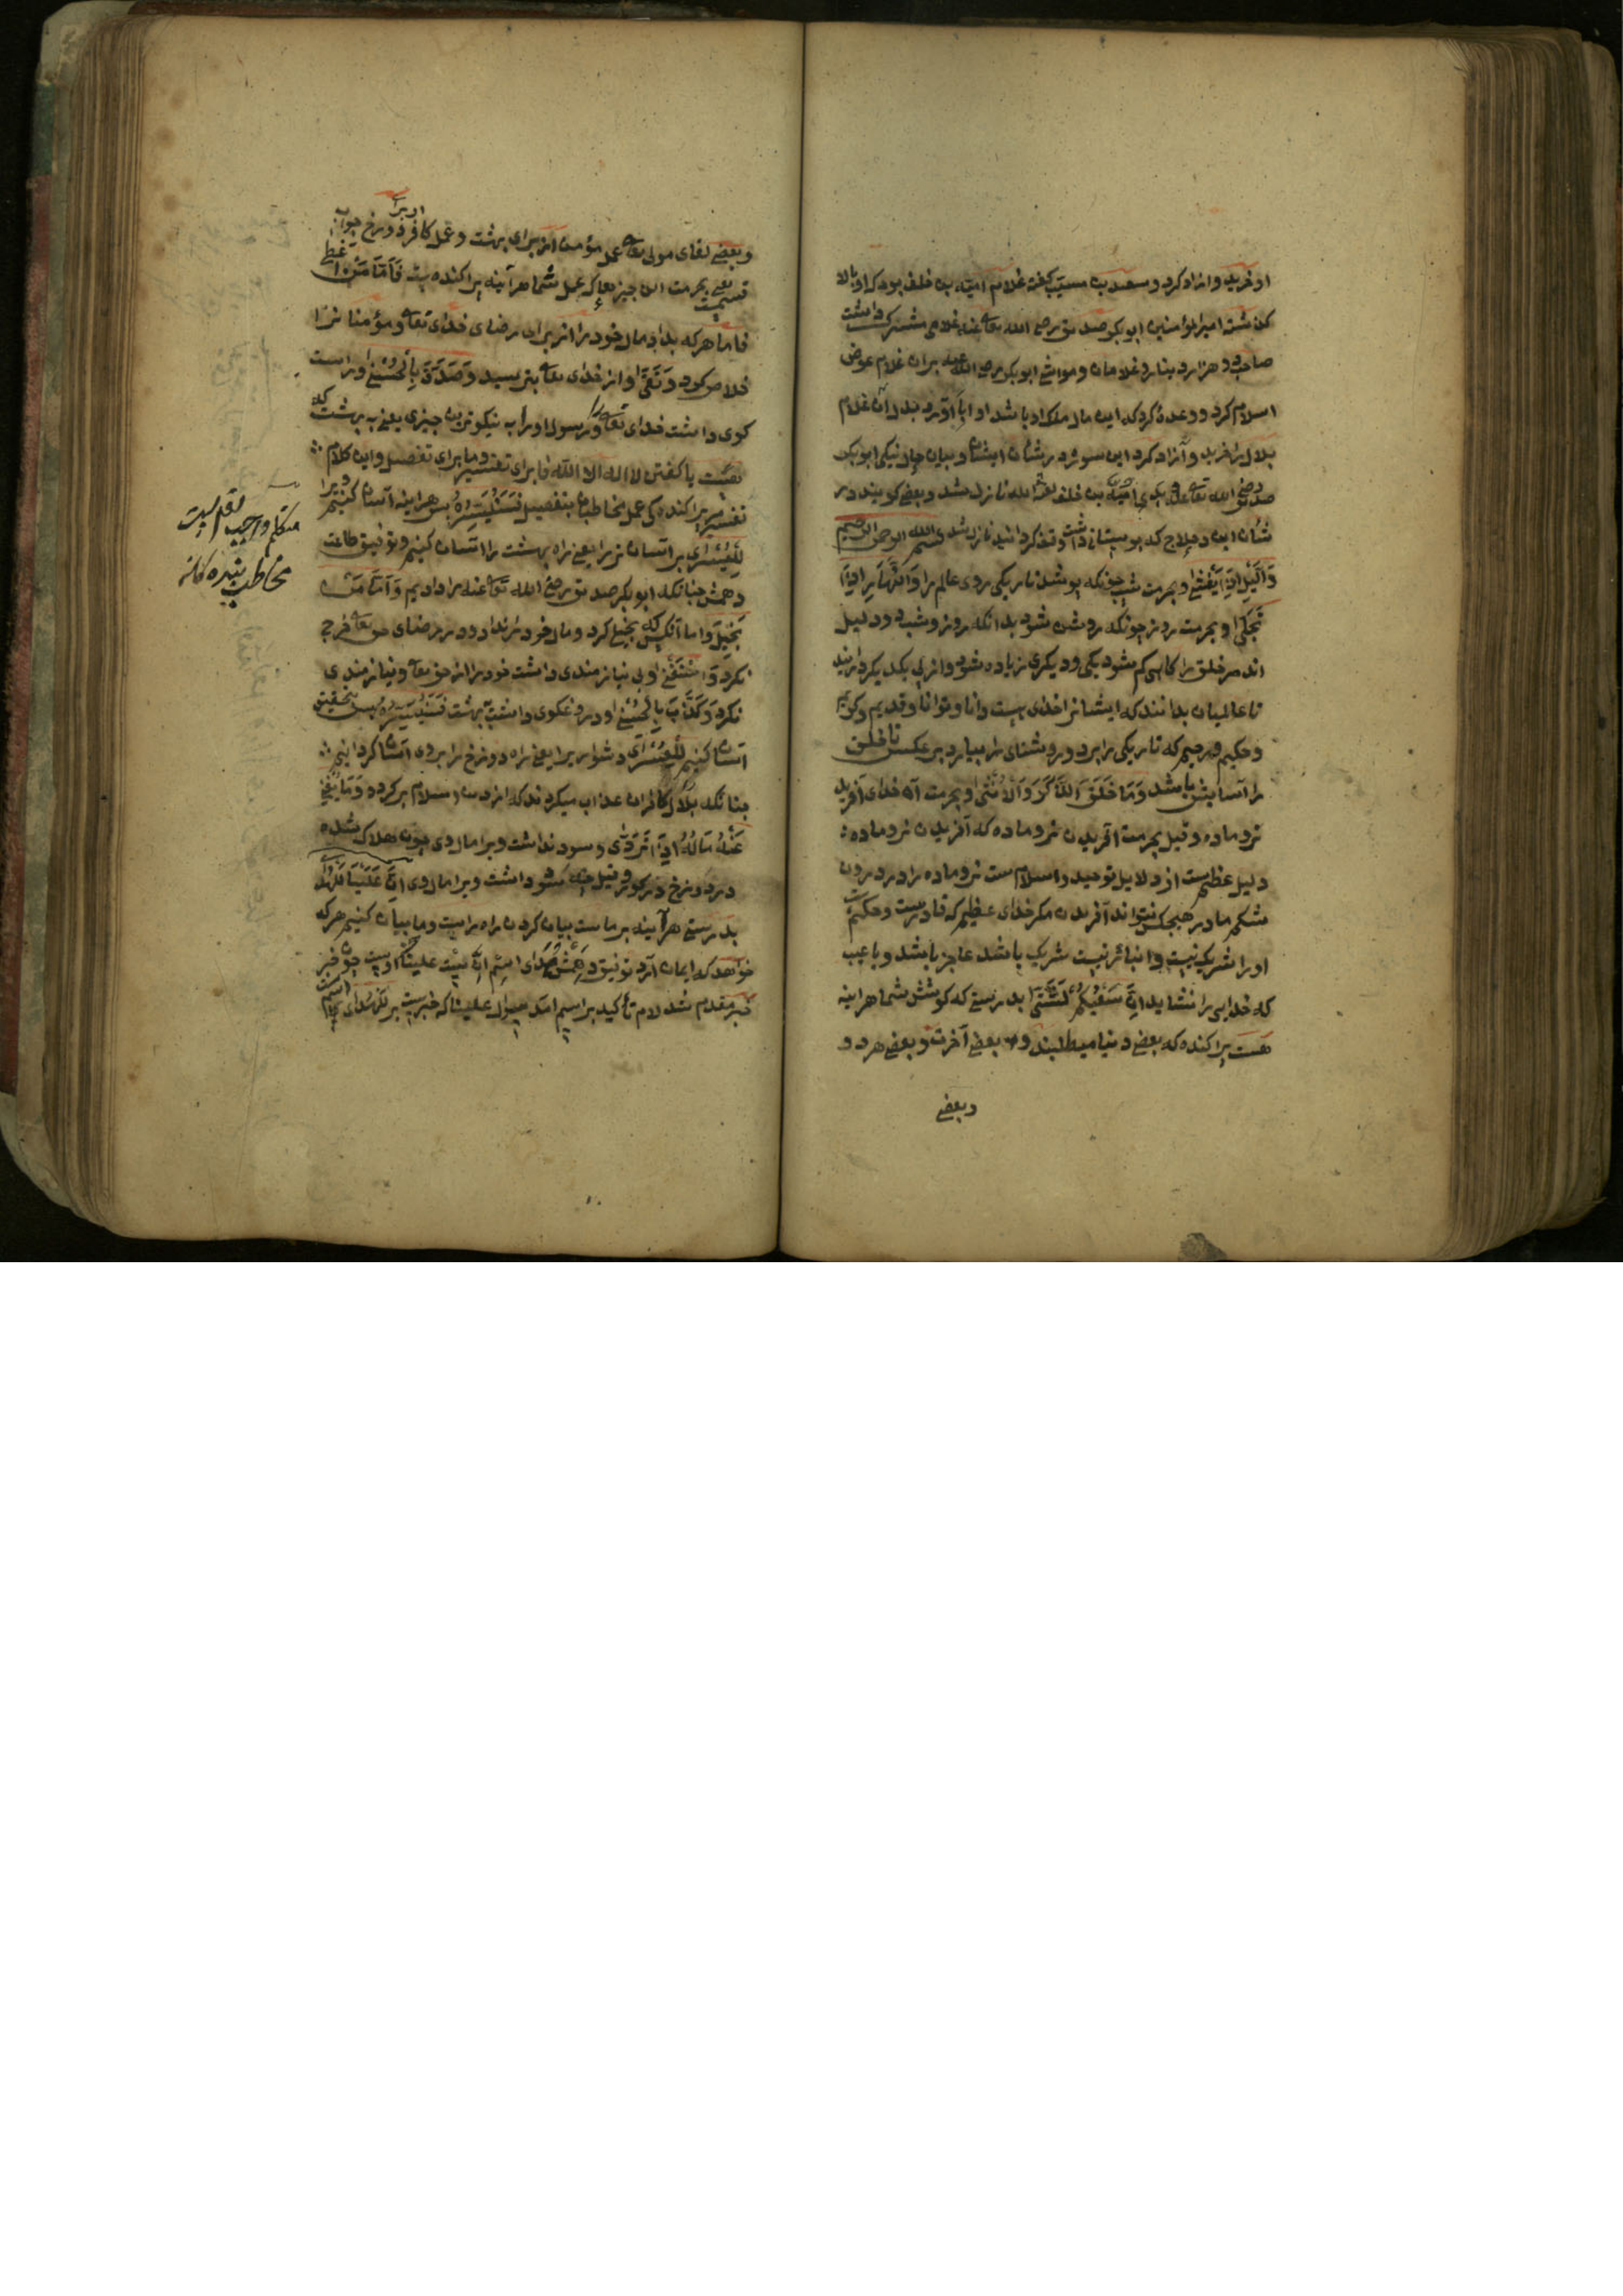 او خرید و ازاد کرد و سعد بن مسیب گفته غلام امیّه بن خلف بود که او بالا
گذشته امیرالمؤمنین ابوبکر صدیق رضی الله تعالی عنه غلامی مشرک داشت
صاحب ده هزار دینار و غلامان و مواشی ابوبکر رضی الله عنه بران غلام عرض
اسلام کرد و وعده کرد که این مال ملک او باشد او ابا آورد بدل آن غلام
بلال را خرید و آزاد کرد این سوره در شأن ایشان و بیان حال نیکی ابوبکر
صدیق رضی الله تعالی عنه و بدی امیّه بن خلف لعنه الله نازل شد و بعضی گویند در
شأن ابو دحداح که بوستانی داشت و تصدق کرد نازل شد بسم الله الرحمن الرحیم
وَالَّیْلِ اِذَا یَغْشٰی و بحرمت شب چونکه پوشد تاریکی روی عالم را وَالنَّهَارِ اِذَا
تَجَلّٰی و بحرمت روز چونکه روشن شود بدانکه روز و شب دو دلیل
اند مر خلق را کاهی کم شود یکی و دیکری زیاده شود و از پی یکدیکر درایند
تا عالمیان بدانند که ایشانرا خدای است دانا و توانا و قدیم و کریم
و حکیم و رحیم که تاریکی را برد و روشنای را بیارد بر عکس تا خلق
را آسایش باشد وَمَا خَلَقَ الذَّکَرَ وَالْاُنْثٰی و بحرمت آن خدای آفرید
نر و ماده و قیل بحرمت آفریدن نر و ماده که آفریدن نر و ماده
دلیل عظیم است از دلایل توحید و اسلام است نر و ماده را در درون
شکم مادر هیچکس نتواند آفریدن مکر خدای عظیم که قادریست و حکیم است
او را شریک نیست و انباز نیست شریک باشد عاجز باشد و با عیب
که خدایی را نشاید اِنَّ سَعْیَکُمْ لَشَتّٰی بدرستی که کوشش شما هراینه
هست پراکنده که بعضی دنیا میطلبند و بعضی آخرت و بعضی هر دو
و بعضی
و بعضی لقای مولی تعالی عمل مؤمن از برای بهشت و عمل کافر از برای دوزخ جواب
قسم است یعنی بحرمت این چیزها که عمل شما هرآینه پراکنده است فَاَمَّا مَنْ اَعْطٰی
فاما هر که بداد مال خود را از برای رضای خدای تعالی و مؤمنانرا
خلاص کرد وَتَّقٰی و از خدای تعالی بترسید وَصَدَّقَ بِالْحُسْنٰی و راست
کوی داشت خدای تعالی را و رسول او را به نیکوترین چیزی یعنی به بهشت که
هست یا کفتن لا اله الا الله فا برای تفسیر و ما برای تفصیل و این کلام
تفسیر پراکنده کی عمل مخاطبان بتفصیل فَسَنُیَسِّرُهُ پس هراینه آسان کنیم ویرا
لِلْیُسْرٰی برای آسان تر را یعنی راه بهشت را آسان کنیم و توفیق طاعت
دهمش چنانکه ابوبکر صدیق رضی الله تعالی عنه را دادیم وَاَمَّا مَنْ
بَخِلَ و اما آنکس که بخیلی کرد و مال خود را نداد و در رضای حق تعالی خرج
نکرد وَاسْتَغْنٰی و بی نیازمندی داشت خود را از حق تعالی و نیازمندی
نکرد وَکَذَّبَ بِالْحُسْنٰی و دروغکوی داشت بهشت فَسَنُیَسِّرُهُ پس بتحقیق
آسان کنیم لِلْعُسْرٰی دشوار را یعنی راه دوزخ را بر وی آسان کردانیم
چنانکه بلال را کافران عذاب میکردند که از دین اسلام برکرد وَمَا یُغْنِی
عَنْهُ مَالُهُ اِذَا تَرَدّٰی و سود نداشت ویرا مال وی چون هلاک شده
در دوزخ در کور و قیل چه سود داشت ویرا مال وی اِنَّ عَلَیْنَا لَلْهُدٰی
بدرستی هرآینه بر ماست بیان کردن راه راست و ما بیان کنیم هر که
خواهد که ایمان آرد توفیق دهمش هدای اسم اِنَّ علینا اوست چون خبر
خبر مقدم شد لام تأکید بر اسم آمد علینا که خبرست بر للهدای که اسم
متکلم واجب تقدیست
مخاطب بنده کانه